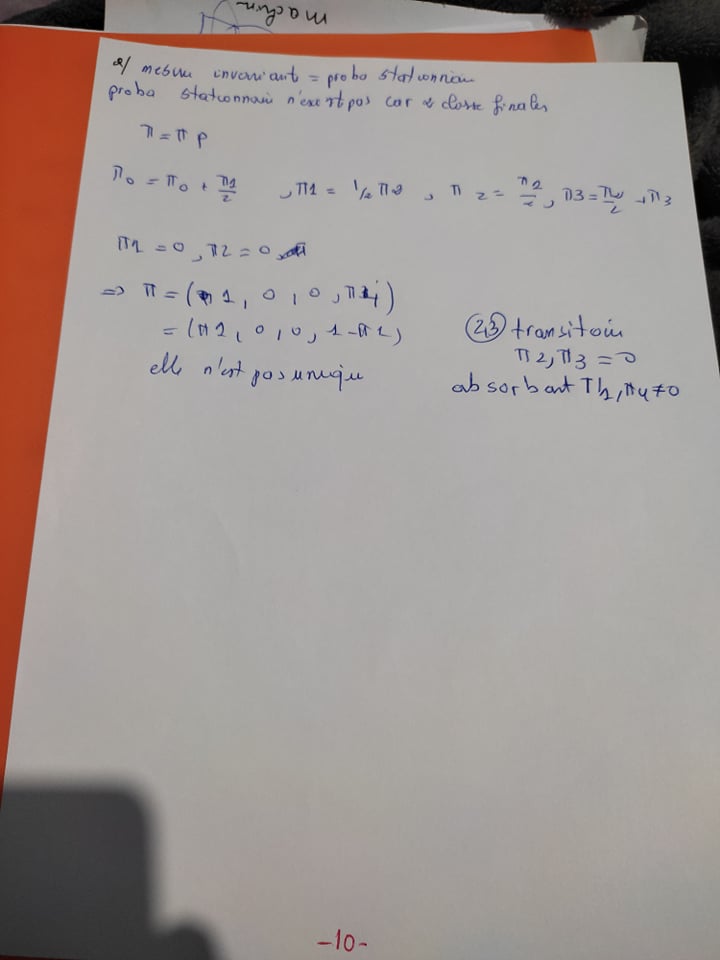 machin
2/ mesure invariant = proba stationnaire
proba stationnair n'exist pas car 2 classe finales
π = π P
π0 = π0 + π1/2 , π1 = 1/2 π2 , π2 = π1/2 , π3 = π2/2 + π3
π1 = 0 , π2 = 0
=> π = (π1, 0, 0, π4)
= (π1, 0, 0, 1-π1)
elle n'est pas unique
(2,3) transitoire
π2, π3 = 0
absorbant π1, π4 ≠ 0
-10-